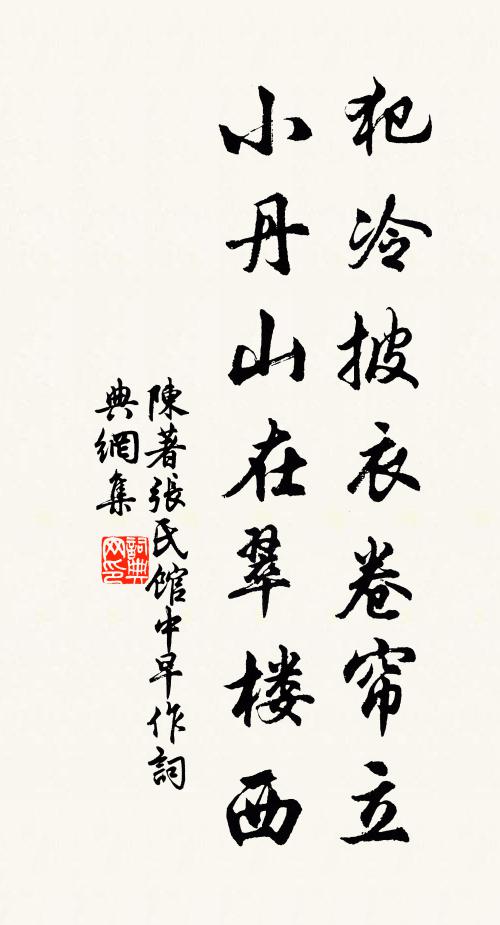 犯冷披衣卷帘立
小丹山在翠楼西
陳著張民馆中早作詞
典網集
詞典网印